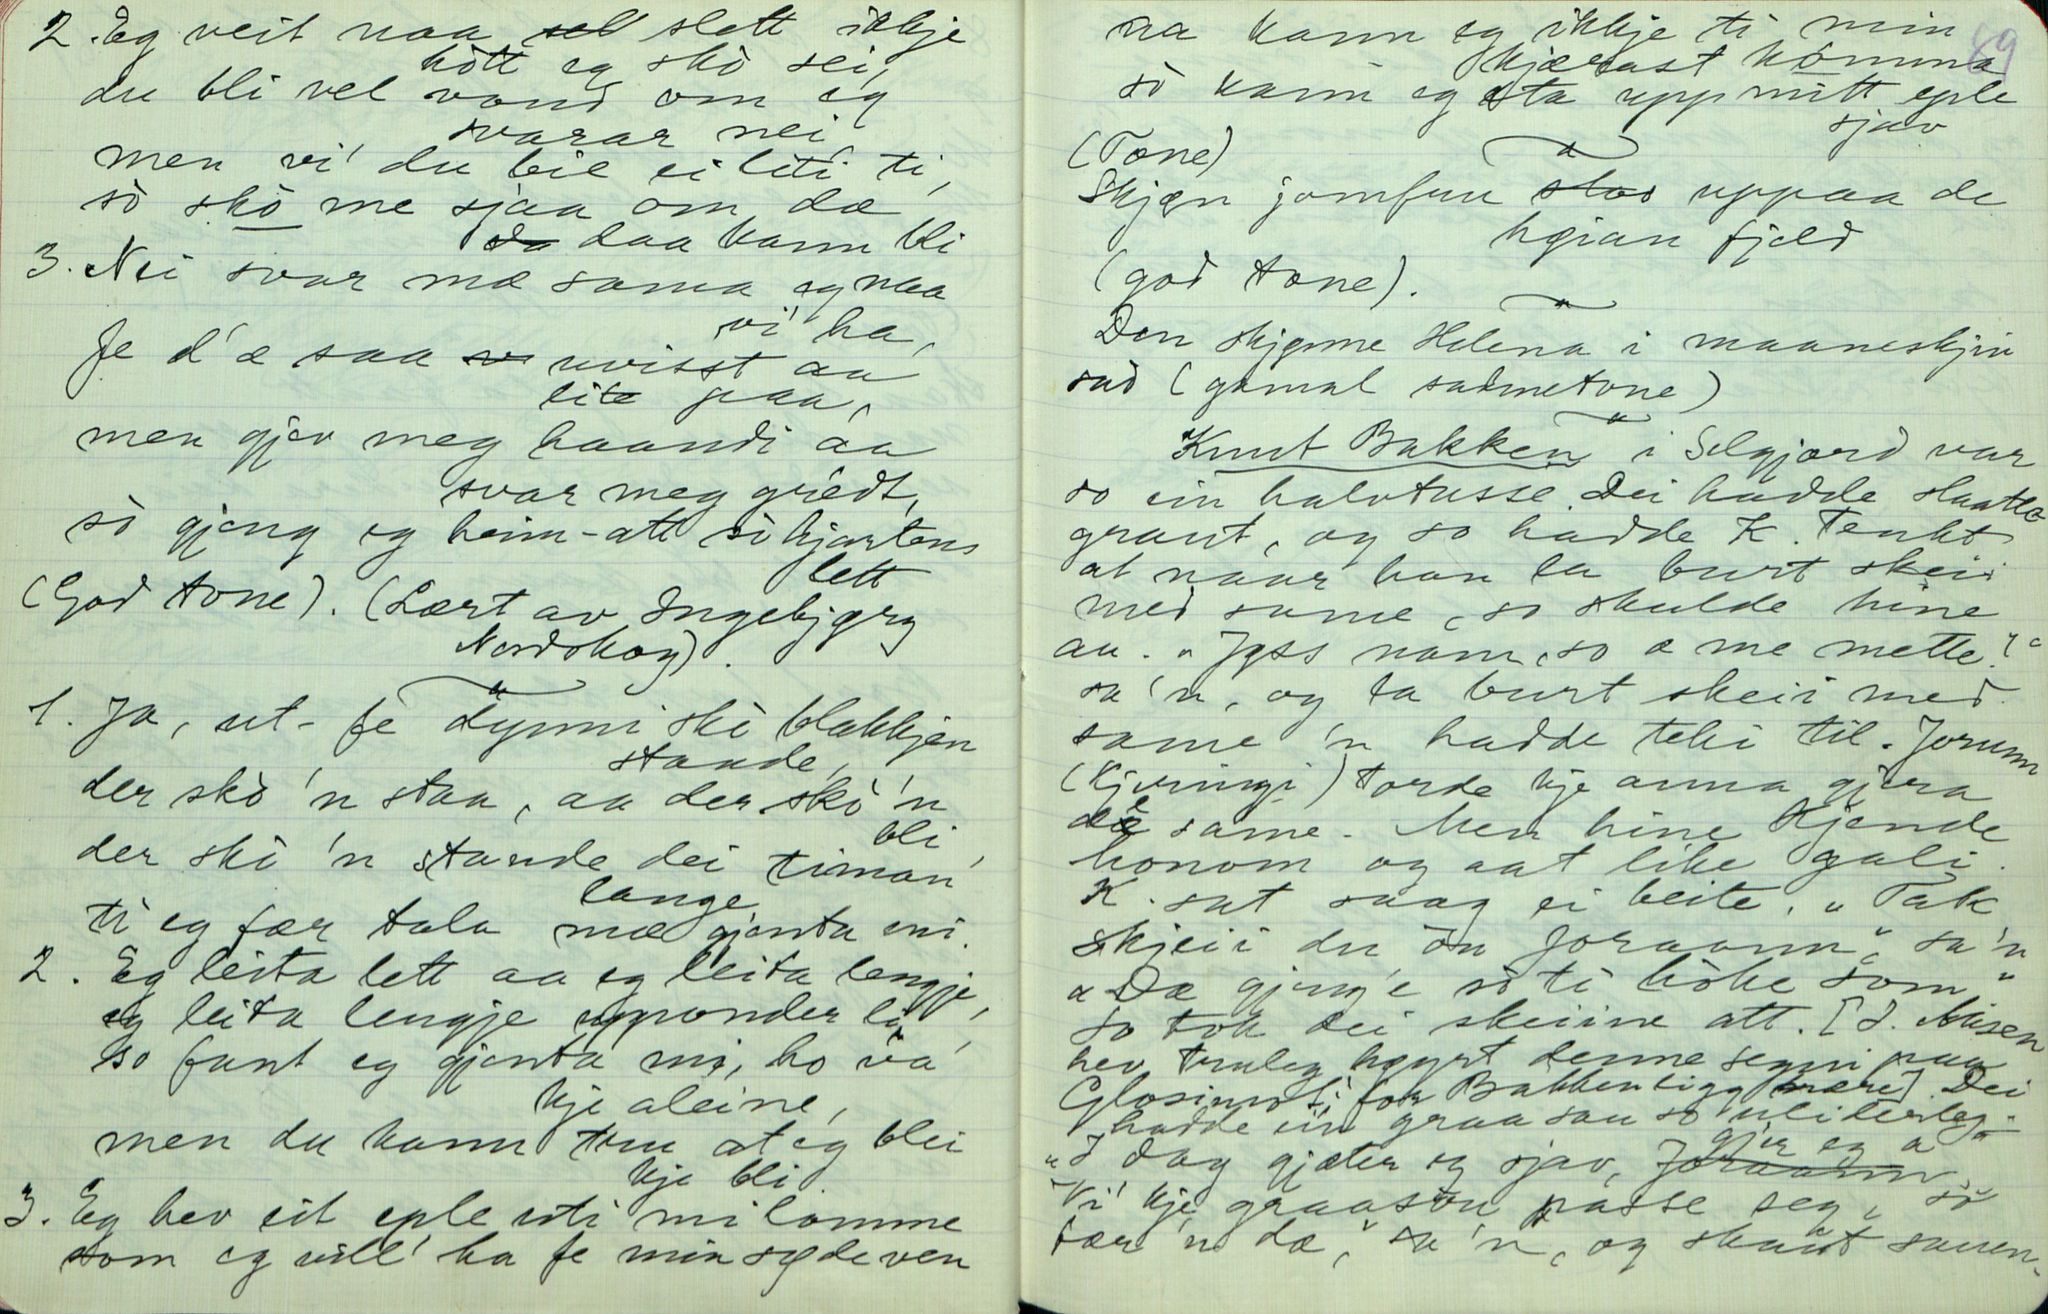 2. Eg veit naa sell slett ikkje
hòtt eg skò sei,
du bli vel vond om eg
svarar nei
men vi' du bie ei liti ti,
sò skò me sjaa om dæ
da daa kann bli
3. Nei svar mæ sama eg maa
vi' ha,
fe d'æ saa uvisst aa
lite paa,
men gjev meg haandi aa
svar meg greidt,
sò gjeng eg heim-att sò hjartens
lett
(God tone). (Lært av Ingebjørg
Nordskog).
1. Ja, ut-fe dynni skò blakkjen
stande,
der skò 'n staa, aa der skò 'n
bli,
der skò 'n stande dei timan
lange
ti eg fær tala mæ gjenta mi.
2. Eg leita lett aa eg leita lengje,
eg leita lengje upponder lia,
so fant eg gjenta mi, ho va'
kje aleine,
men du kann tru at eg blei
kje bli
3. Eg hev eit eple uti mi lomme
som eg vill' ha fe min søde ven
na kann eg ikkje ti min
kjærast kòmma
69
sò kann eg eta upp mitt eple
sjøv
(Tone)
Skjøn jomfru stod uppaa de
høian fjeld
(god tone).
Den skjønne Helena i maaneskjin
sad (gamal salmetone)
Knut Bakken i Selgjord var
so ein halvtusse. Dei hadde slaatte-
graut, og so hadde K. tenkt
at naar han la burt skei
med same, so skulde hine
au. "Jøss namn, so æ me mette!"
sa 'n, og la burt skeii med
same 'n hadde teki til. Jorunn
(Kjeringi) torde kje anna gjera
de same. Men hine kjende
honom og aat like gali.
K. sat saag ei beite. "Tak
skjeii du òu Joraann", sa'n
"Dæ gjeng'e sò ti hòke som"
so tok dei skeiine att. [J. Nisen
hev truleg høyrt denne segni paa
Glosimot, for Bakken ligg nære]. Dei
hadde ein graa sau so uliderleg.
"I dag gjæter eg sjøv, Joraann
gjer eg a
"Vi' kje graasòu passe seg, sò
tær 'n dæ", sa 'n, og skaut sauen.